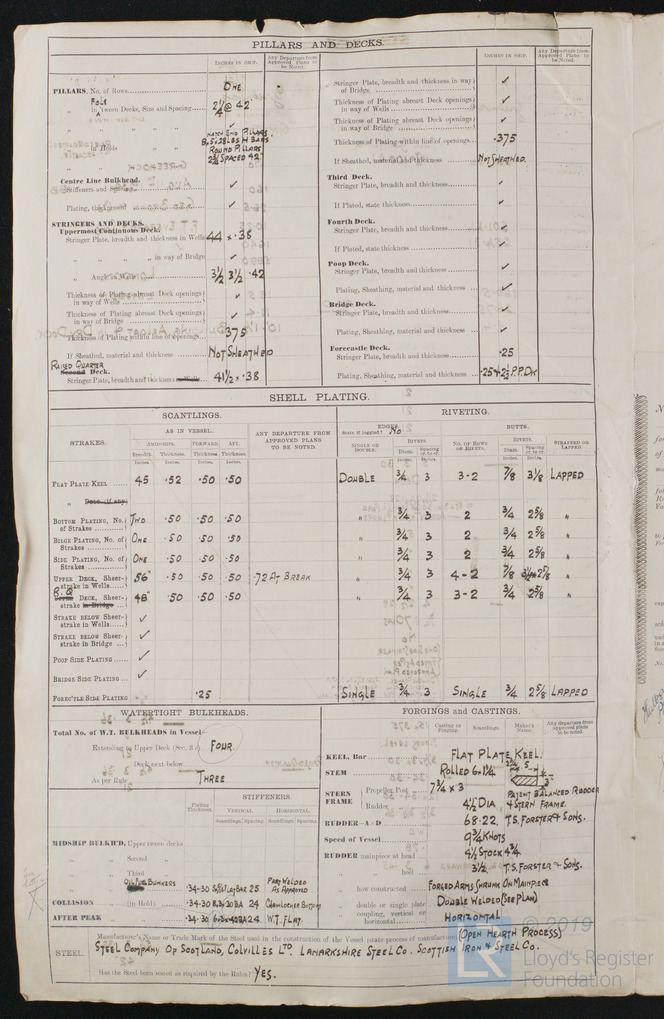 PILLARS AND DECKS.
INCHES IN SHIP.
Any Departure from Approved Plans to be Noted.
PILLARS, No. of Rows
ONE
FOLE
in 'Tween Decks, Size and Spacing
2¼ @ 42"
in Holds
HATCH END PILLARS
ROUND PILLARS
2¾ SPACED 42"
Centre Line Bulkhead.
Stiffeners and Spacing ✓
Plating, thickness ✓
STRINGERS AND DECKS.
Uppermost Continuous Deck.
Stringer Plate, breadth and thickness in Wells 44 x .38
" " " " in way of Bridge ✓
" Angle in Wells 3½ 3½ .42
Thickness of Plating abreast Deck openings in way of Wells ✓
Thickness of Plating abreast Deck openings in way of Bridge ✓
Thickness of Plating within line of openings .375
If Sheathed, material and thickness NOT SHEATHED
RAISED QUARTER
Second Deck.
Stringer Plate, breadth and thickness in Wells 41½ x .38
INCHES IN SHIP.
Any Departure from Approved Plans to be Noted.
Stringer Plate, breadth and thickness in way of Bridge ✓
Thickness of Plating abreast Deck openings in way of Wells ✓
Thickness of Plating abreast Deck openings in way of Bridge ✓
Thickness of Plating within line of openings .375
If Sheathed, material and thickness NOT SHEATHED.
Third Deck.
Stringer Plate, breadth and thickness ✓
If Plated, state thickness ✓
Fourth Deck.
Stringer Plate, breadth and thickness ✓
If Plated, state thickness ✓
Poop Deck.
Stringer Plate, breadth and thickness ✓
Plating, Sheathing, material and thickness ✓
Bridge Deck.
Stringer Plate, breadth and thickness ✓
Plating, Sheathing, material and thickness ✓
Forecastle Deck.
Stringer Plate, breadth and thickness .25
Plating, Sheathing, material and thickness .25 + 2½ P.P. DK
SHELL PLATING.
SCANTLINGS.
RIVETING.
STRAKES.
AS IN VESSEL.
AMIDSHIPS. FORWARD. AFT.
Breadth. Thickness. Thickness. Thickness.
Inches. Inches. Inches. Inches.
ANY DEPARTURE FROM APPROVED PLANS TO BE NOTED.
EDGES.
State if joggled? No
SINGLE OR DOUBLE.
RIVETS.
Diam. Spacing cr. to cr.
BUTTS.
NO. OF ROWS OF RIVETS.
RIVETS.
Diam. Spacing cr. to cr.
STRAPPED OR LAPPED.
FLAT PLATE KEEL 45 .52 .50 .50 DOUBLE ¾ 3 3-2 ⅞ 3⅛ LAPPED
BOTTOM PLATING, No. of Strakes TWO .50 .50 .50 " ¾ 3 2 ¾ 2⅝ "
BILGE PLATING, No. of Strakes ONE .50 .50 .50 " ¾ 3 2 ¾ 2⅝ "
SIDE PLATING, No. of Strakes ONE .50 .50 .50 " ¾ 3 2 ¾ 2⅝ "
UPPER DECK, Sheerstrake in Wells 56" .50 .50 .50 .72 AT BREAK " ¾ 3 4-2 ⅞ 2⅞ "
R.Q. DECK, Sheerstrake in Bridge 48" .50 .50 .50 " ¾ 3 3-2 ¾ 2⅝ "
STRAKE BELOW Sheerstrake in Wells ✓
STRAKE BELOW Sheerstrake in Bridge ✓
POOP SIDE PLATING ✓
BRIDGE SIDE PLATING ✓
FORE'C'TLE SIDE PLATING .25 SINGLE ¾ 3 SINGLE ¾ 2⅝ LAPPED
WATERTIGHT BULKHEADS.
Total No. of W.T. BULKHEADS in Vessel
Extending to Upper Deck FOUR
Deck next below
As per Rule THREE
Plating Thickness.
STIFFENERS.
VERTICAL. HORIZONTAL.
Scantlings. Spacing. Scantlings. Spacing.
MIDSHIP BULKH'D, Upper 'tween decks
" Second "
" Third "
OIL FUEL BUNKERS .34-.30 25 PART WELDED AS APPROVED
COLLISION (in Hold) .34-.30 24
AFTER PEAK " .34-.30 24 W.T. FLAT.
FORGINGS and CASTINGS.
Casting or Forging. Scantlings. Maker's Name. Any departure from approved plans to be noted.
KEEL, Bar FLAT PLATE KEEL.
STEM ROLLED 6 x 1¼
STERN FRAME Propeller Post 7¾ x 3
Rudder " 4½ DIA PATENT BALANCED RUDDER & STERN FRAME.
RUDDER—A×D 68.22. T.S. FORSTER & SONS.
Speed of Vessel 9¾ KNOTS
RUDDER mainpiece at head 4½ STOCK 4¾
" " heel 3½ T.S. FORSTER & SONS.
" how constructed FORGED ARMS SHRUNK ON MAINPIECE
" double or single plate DOUBLE WELDED (SEE PLAN)
" coupling, vertical or horizontal HORIZONTAL
STEEL.
Manufacturer's Name or Trade Mark of the Steel used in the construction of the Vessel (state process of manufacture) (OPEN HEARTH PROCESS)
STEEL COMPANY OF SCOTLAND, COLVILLES LTD. LANARKSHIRE STEEL CO. SCOTTISH IRON & STEEL CO.
Has the Steel been tested as required by the Rules? YES.
© 2019
LR
Lloyd's Register
Foundation